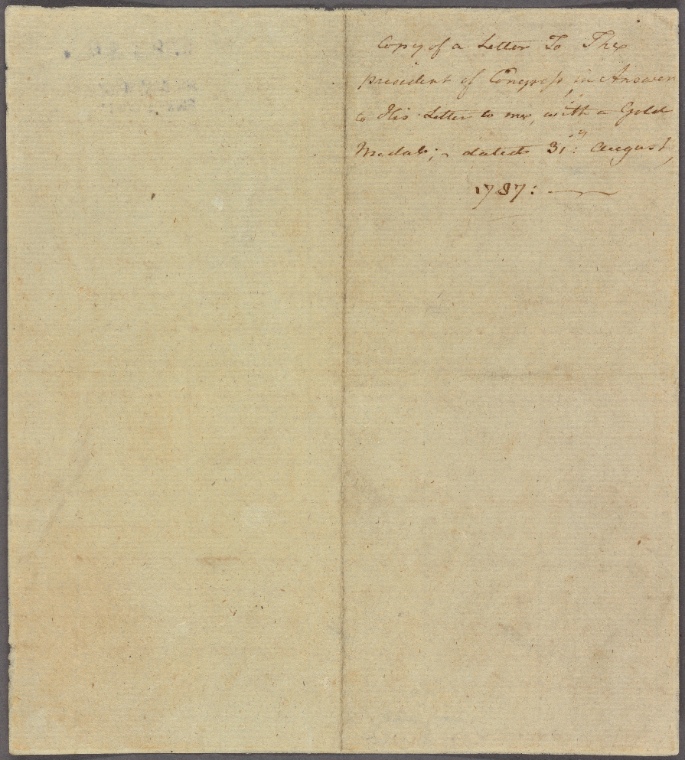 Copy of a Letter To The
president of Congress in Answer
to His Letter to me, with a Gold
Medal; - dated 31: August,
1787: